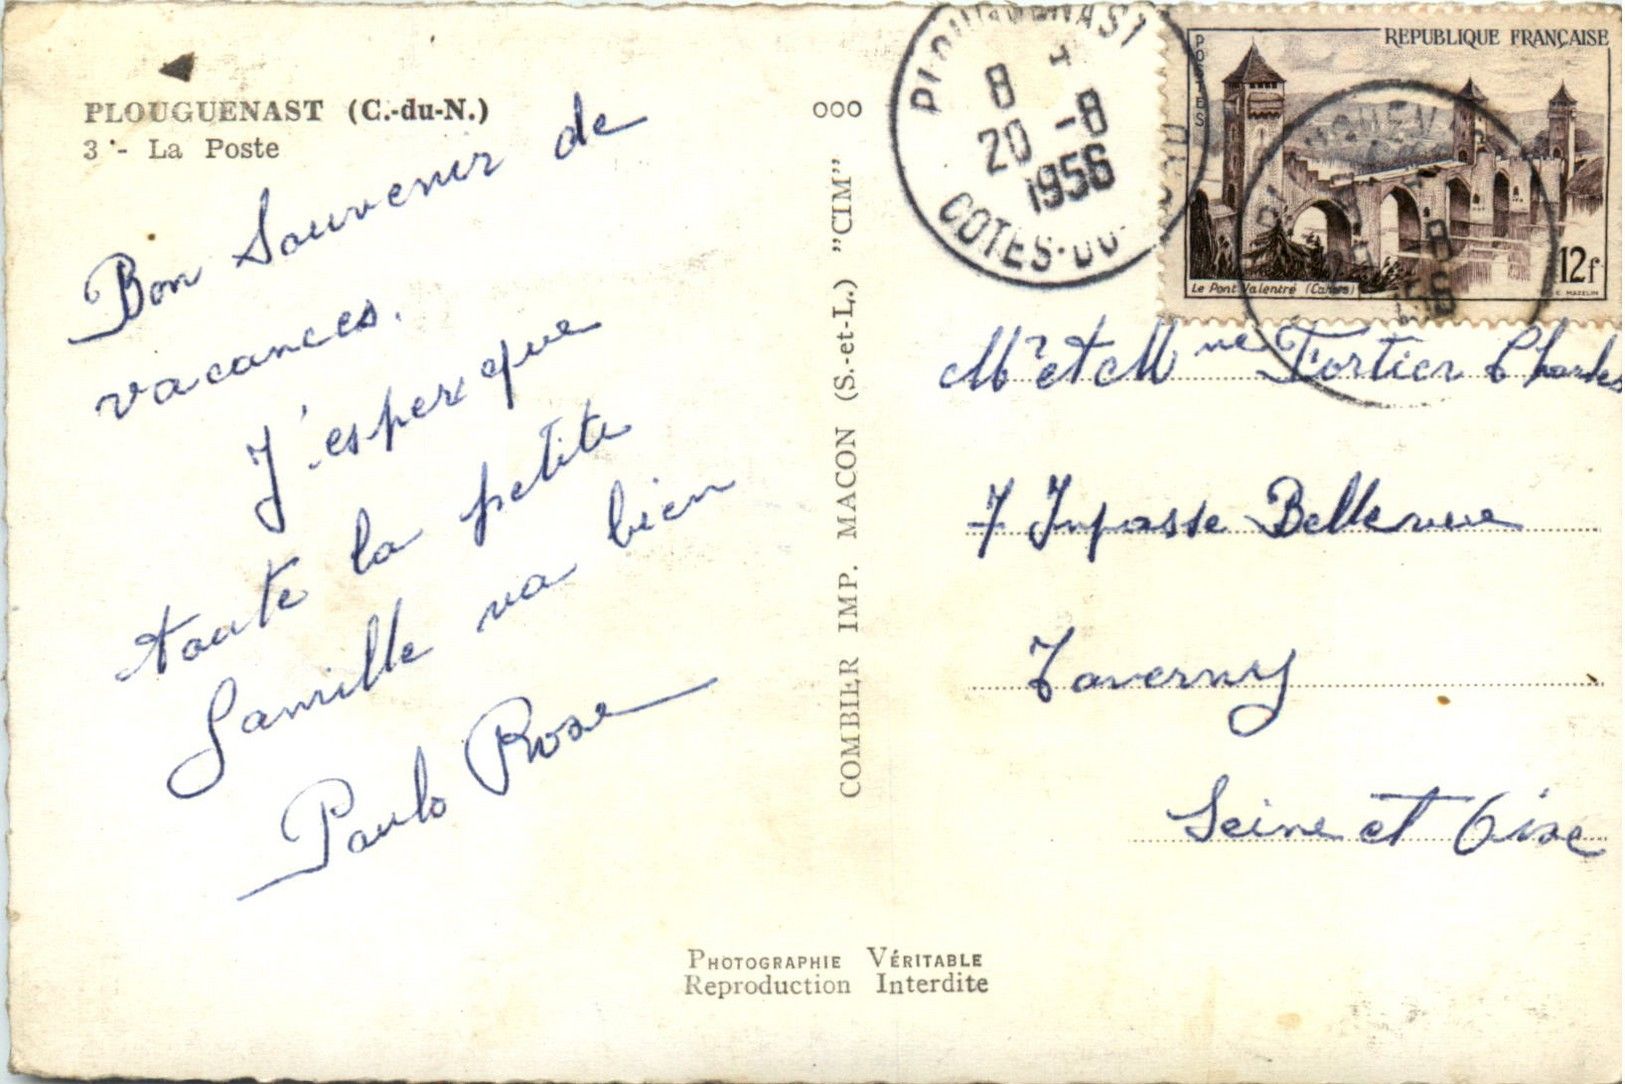 PLOUGUENAST (C.-du-N.)
3 - La Poste
Bon Souvenir de
vacances.
J'esper que
toute la petite
famille va bien
Paulo Rose
ooo
COMBIER IMP. MACON (S.-et-L.) "CIM"
PLOUGUENAST
8 H
20 -8
1956
COTES-DU-
REPUBLIQUE FRANÇAISE
POSTES
12f
Le Pont Valentré (Cahors)
C. MAZELIN
Mr et Mme Fortier Charles
7 Impasse Bellevue
Taverny
Seine et Oise
PHOTOGRAPHIE VÉRITABLE
Reproduction Interdite